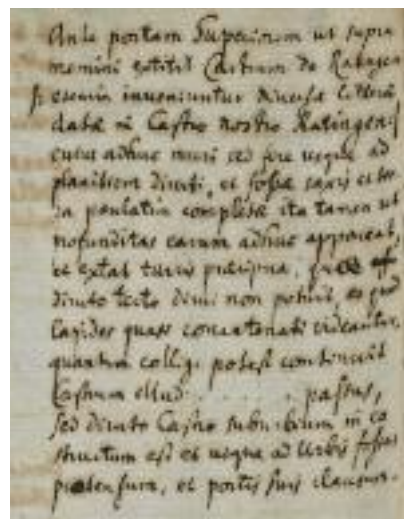 Ante portam Superiorem ut supra
memini extitit Castrum de Ratingen
inveniuntur diversæ litteræ
datæ in Castro nostro Ratingen
cuius adhuc muri sed fere usque ad
planitiem diruti, et fossæ saxis et ter
ra paulatim completæ ita tamen ut
profunditas earum adhuc appareat,
et extat turris
diruto tecto dirui non potuit, eo quod
lapides quasi concatenati videantur,
quantum colligi potest continuit
Castrum illud . . . . . . passus,
sed diruto Castro suburbium in eo
structum est et usque ad Urbis fossas
protensum, et portis suis clausum.